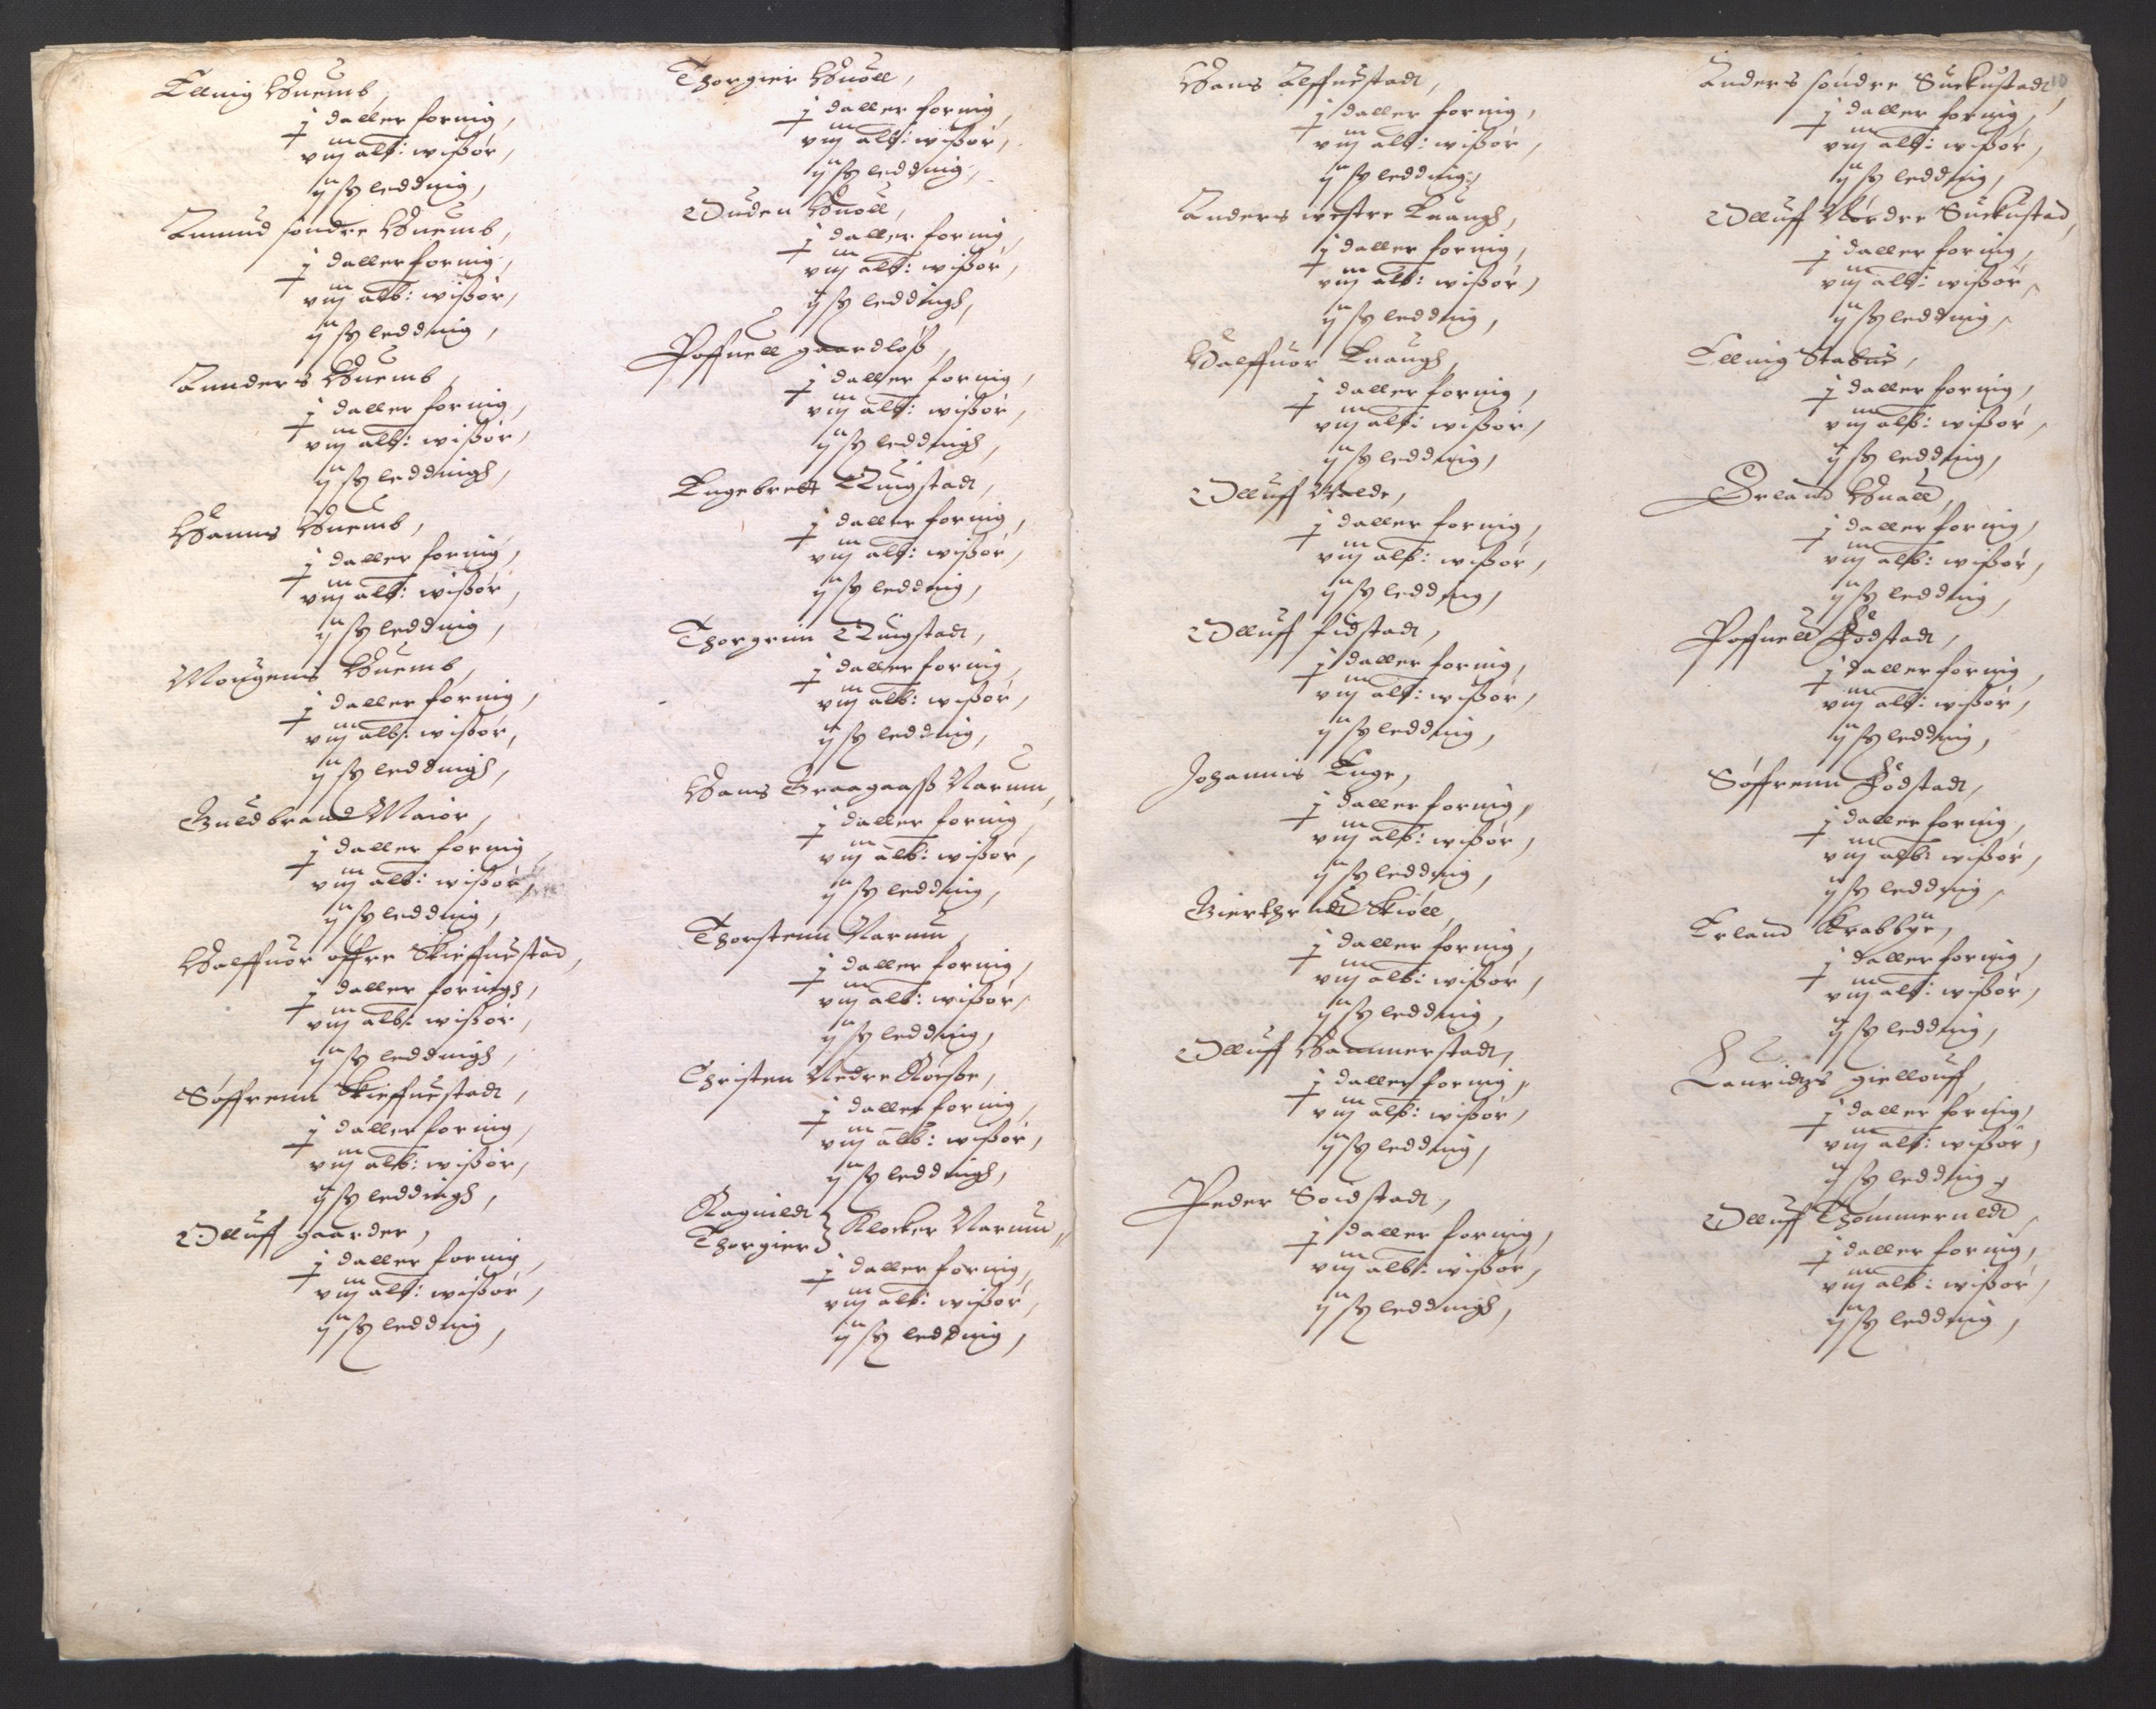 Elling Huemb,
j daller forring,
viij alb: wißör,
ij ß ledding,
Amund söndre Huemb,
j daller forring,
viij alb: wißör,
ij ß ledding,
Annders Huemb,
j daller forring,
viij alb: wißör,
ij ß leddingh,
Hanns Huemb,
j daller forring,
viij alb: wißör,
ij ß ledding,
Mougens Huemb,
j daller forring,
viij alb: wißör,
ij ß leddingh,
Guldbrand Maior,
j daller forring,
viij alb: wißör,
ij ß ledding,
Halffuor öffre Skieffuestad,
j daller forringh,
viij alb: wißör,
ij ß leddingh,
Söffrenn Skieffuestadt,
j daller forring,
viij alb: wißör,
ij ß leddingh,
Olluff gaarder,
j daller forring,
viij alb: wißör,
ij ß ledding,
Thorgier Huoll,
j daller forring,
viij alb: wißör,
ij ß ledding,
Auden Huoll,
j daller forring,
viij alb: wißör,
ij ß leddingh,
Poffuell gaardløß,
j daller forring,
viij alb: wißör,
ij ß leddingh,
Engebrett Ringstadt,
j daller forring,
viij alb: wißör,
ij ß ledding,
Thorgrim Ringstadt,
j daller forring,
viij alb: wißör,
ij ß ledding,
Hans Graagaaß Narum,
j daller forring,
viij alb: wißör,
ij ß ledding,
Thorstenn Narum,
j daller forring,
viij alb: wißör,
ij ß ledding,
Christen Nedre
j daller forring,
viij alb: wißör,
ij ß leddingh,
Ragnildt
Thorgier } Klocker Narum,
j daller forring,
viij alb: wißör,
ij ß ledding,
Hans Alffuestadt,
j daller forring,
viij alb: wißör,
ij ß ledding,
Anders westre Haugh,
j daller forring,
viij alb: wißör,
ij ß ledding,
Halffuor Haugh,
j daller forring,
viij alb: wißör,
ij ß ledding,
Olluff
j daller forring,
viij alb: wißör,
ij ß ledding,
Olluff fidstadt,
j daller forring,
viij alb: wißör,
ij ß ledding,
Johannis Enge,
j daller forring,
viij alb: wißör,
ij ß ledding,
Gierthrudt Skiöll,
j daller forring,
viij alb: wißör,
ij ß ledding,
Olluff Hammerstadt,
j daller forring,
viij alb: wißör,
ij ß ledding,
Peder Soidstadt,
j daller forring,
viij alb: wißör,
ij ß leddingh,
10
Anders söndre Suckustadt,
j daller forring,
viij alb: wißör,
ij ß ledding,
Olluff Nordre Suckustad,
j daller forring,
viij alb: wißör,
ij ß ledding,
Elling Stabue,
j daller forring,
viij alb: wißör,
ij ß ledding,
Erland Huall,
j daller forring,
viij alb: wißör,
ij ß ledding,
Poffuell Födstadt,
j daller forring,
viij alb: wißör,
ij ß ledding,
Söffrenn Födstadt,
j daller forring,
viij alb: wißör,
ij ß ledding,
Erland Krabbye,
j daller forring,
viij alb: wißör,
ij ß ledding,
Lauridtzs giellouff,
j daller forring,
viij alb: wißör,
ij ß ledding,
Olluff Thommeruldt,
j daller forring,
viij alb: wißör,
ij ß ledding,